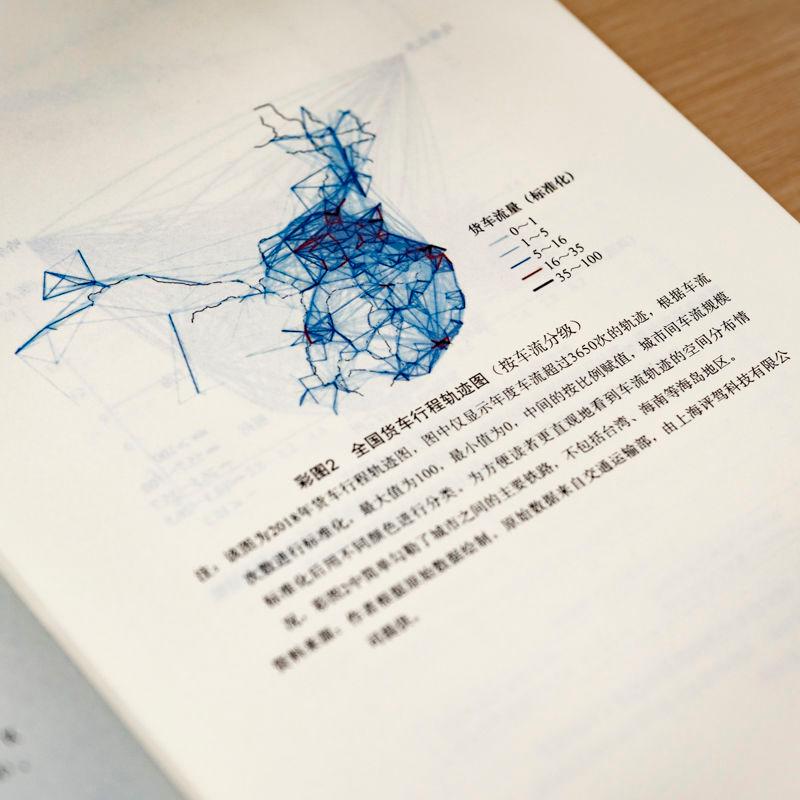 货车流量（标准化）
0～1
1～5
5～16
16～35
35～100
彩图2 全国货车行程轨迹图（按车流分级）
注：该图为2018年货车行程轨迹图，图中仅显示年度车流超过3650次的轨迹，根据车流
次数进行标准化，最大值为100，最小值为0，中间的按比例赋值，城市间车流规模
标准化后用不同颜色进行分类。为方便读者更直观地看到车流轨迹的空间分布情
况，彩图2中简单勾勒了城市之间的主要铁路，不包括台湾、海南等海岛地区。
资料来源：作者根据原始数据绘制，原始数据来自交通运输部，由上海评驾科技有限公
司提供。